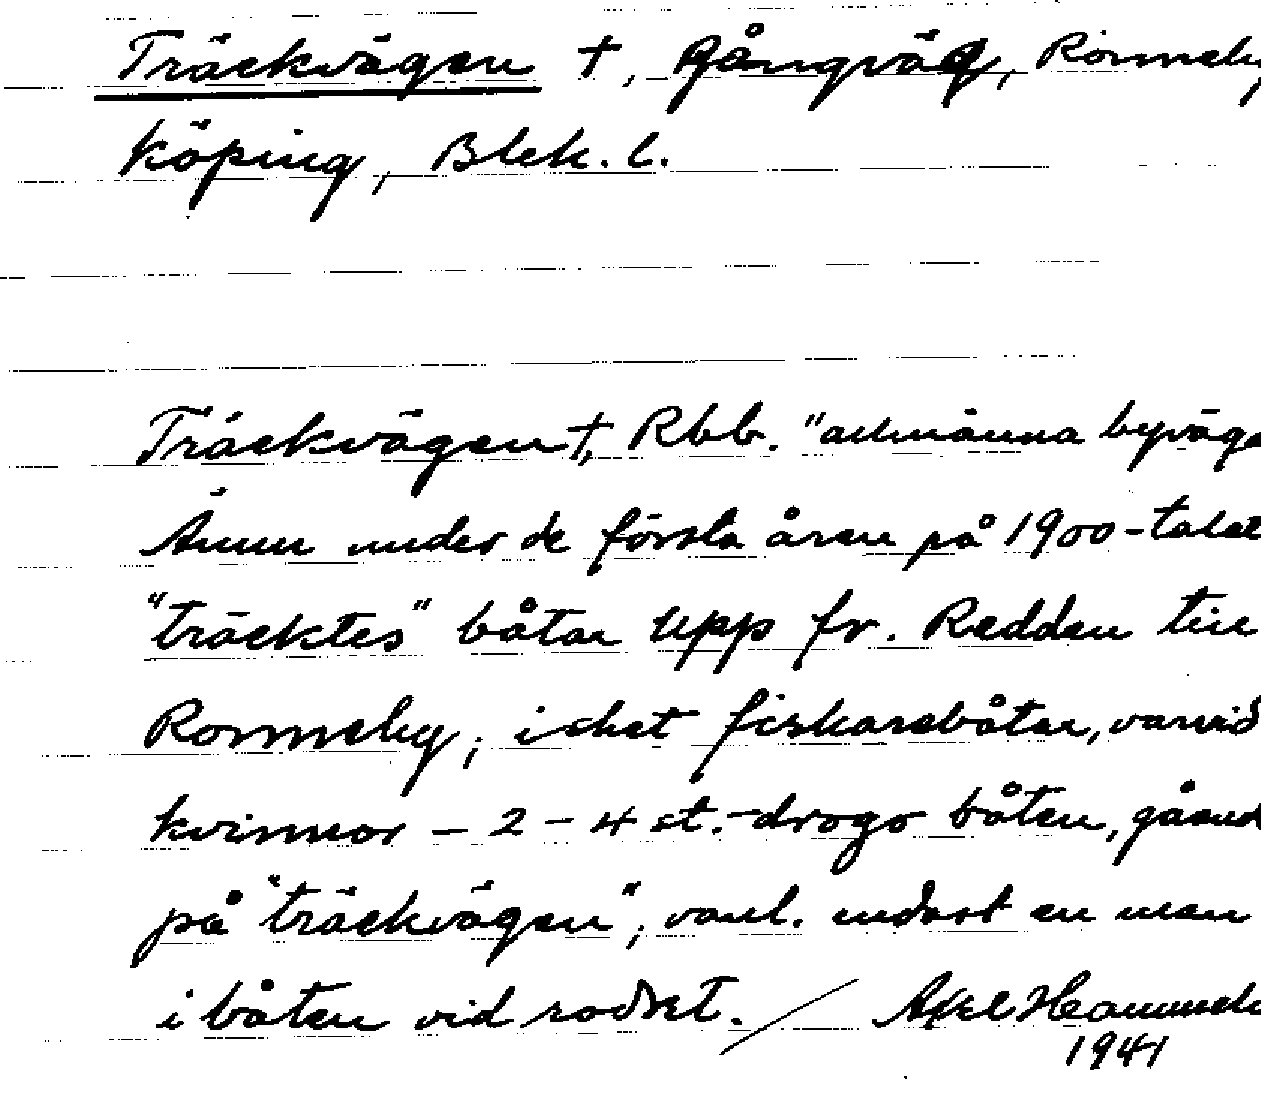 Träckvägen †, gångväg, Ronneby
köping, Blek. l.
Träckvägen †, Rbb. "allmänna byväge
Ännu under de första åren på 1900-talet
"träcktes" båtar upp fr. Redden till
Ronneby, isket fiskarebåtar, varvid
kvinnor – 2 – 4 st. – drogo båten, gåend
på "träckvägen", vanl. endast en man
i båten vid rodret. / Axel
1941